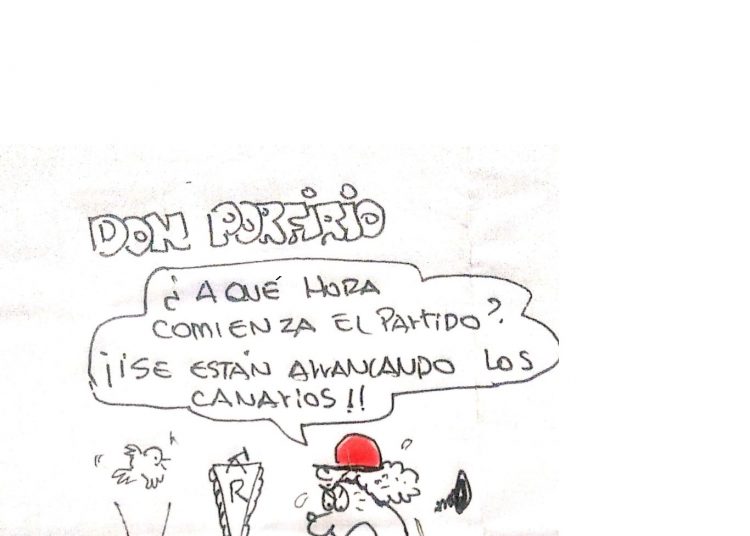 DON PORFIRIO
¿A QUÉ HORA
COMIENZA EL PARTIDO?
¡¡SE ESTÁN ARRANCANDO LOS
CANARIOS!!
A
R